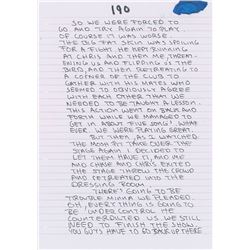 190
SO WE WERE FORCED TO
GO AND TRY AGAIN TO PLAY.
OF COURSE IT WAS WORSE.
THE BIG FAT SKIN WAS SPOILING
FOR A FIGHT. HE KEPT RUNNING
AT CHRIS AND THEN ME, THREAT
ENING US AND FLIPPING US THE
BIRD, AND THEN RETREATING TO
A CORNER OF THE CLUB TO
GATHER WITH HIS MATES WHO
SEEMED TO OBVIOUSLY AGREE
WITH EACH OTHER THAT WE
NEEDED TO BE TAUGHT A LESSON.
THIS ACTION WENT ON BACK AND
FORTH WHILE WE MANAGED TO
GET IN ABOUT FIVE SONGS. WHAT
EVER WE WERE PLAYING GREAT.
BUT THEN, AS I WATCHED
THE MOSH PIT TAKE OVER THE
STAGE AGAIN I DECIDED TO
LET THEM HAVE IT, AND ME
AND CHASE AND CHRIS EXITED
THE STAGE THROUGH THE CROWD
AND RETREATED INTO THE
DRESSING ROOM.
THERE'S GOING TO BE
TROUBLE MINNA WE PLEADED.
OH, EVERYTHING IS GOING TO
BE UNDER CONTROL HE
COUNTERED US. WE STILL
NEED TO FINISH THE SHOW.
YOU GUYS HAVE TO GO BACK UP THERE